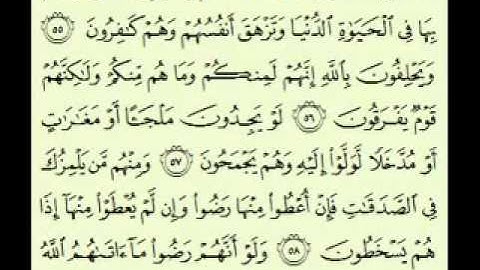 بِهَا فِي الْحَيَوٰةِ الدُّنْيَا وَتَزْهَقَ أَنفُسُهُمْ وَهُمْ كَٰفِرُونَ ٥٥
وَيَحْلِفُونَ بِاللَّهِ إِنَّهُمْ لَمِنكُمْ وَمَا هُم مِّنكُمْ وَلَٰكِنَّهُمْ
قَوْمٌ يَفْرَقُونَ ٥٦ لَوْ يَجِدُونَ مَلْجَـًٔا أَوْ مَغَٰرَٰتٍ
أَوْ مُدَّخَلًا لَّوَلَّوْا۟ إِلَيْهِ وَهُمْ يَجْمَحُونَ ٥٧ وَمِنْهُم مَّن يَلْمِزُكَ
فِي الصَّدَقَٰتِ فَإِنْ أُعْطُوا۟ مِنْهَا رَضُوا۟ وَإِن لَّمْ يُعْطَوْا۟ مِنْهَآ إِذَا
هُمْ يَسْخَطُونَ ٥٨ وَلَوْ أَنَّهُمْ رَضُوا۟ مَآ ءَاتَىٰهُمُ اللَّهُ